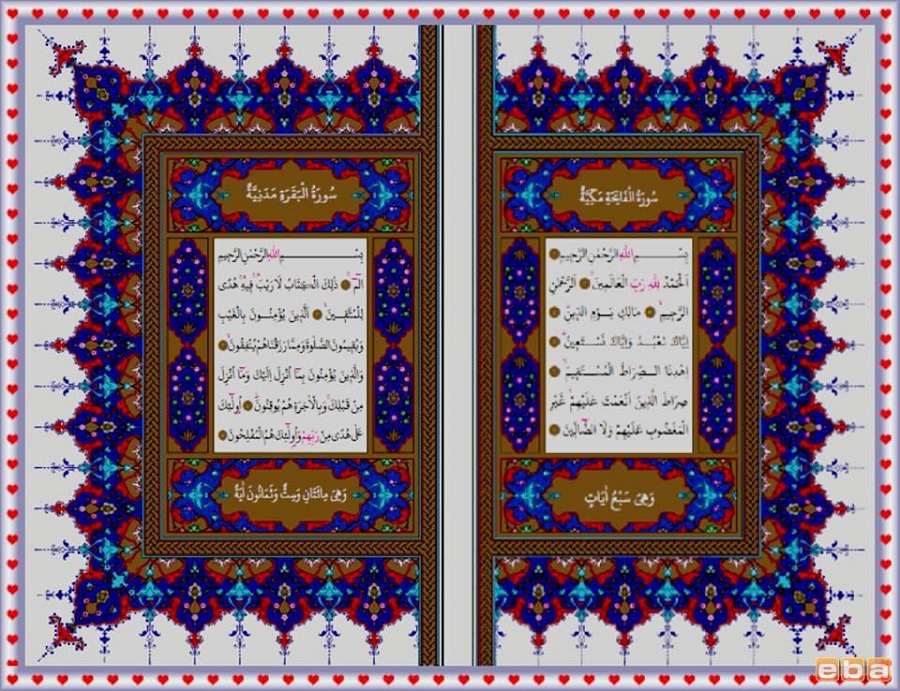 سُورَةُ الْفَاتِحَةِ مَكِّيَّةٌ
بِسْــــــمِ اللهِ الرَّحْمٰنِ الرَّحِيمِ
اَلْحَمْدُ لِلّٰهِ رَبِّ الْعَالَمِينَۙ الرَّحْمٰنِ
الرَّحِيمِۙ مَالِكِ يَوْمِ الدِّينِۜ
اِيَّاكَ نَعْبُدُ وَاِيَّاكَ نَسْتَعِينُۜ
اِهْدِنَا الصِّرَاطَ الْمُسْتَقِيمَۙ
صِرَاطَ الَّذِينَ اَنْعَمْتَ عَلَيْهِمْۙ غَيْرِ
الْمَغْضُوبِ عَلَيْهِمْ وَلَا الضَّٓالِّينَ
وَهِيَ سَبْعُ اٰيَاتٍ
سُورَةُ الْبَقَرَةِ مَدَنِيَّةٌ
بِسْــــــمِ اللهِ الرَّحْمٰنِ الرَّحِيمِ
الٓمٓۚ ذٰلِكَ الْكِتَابُ لَا رَيْبَۚ فِيهِۚ هُدًى
لِلْمُتَّقِينَۙ اَلَّذِينَ يُؤْمِنُونَ بِالْغَيْبِ
وَيُقِيمُونَ الصَّلٰوةَ وَمِمَّا رَزَقْنَاهُمْ يُنْفِقُونَۙ
وَالَّذِينَ يُؤْمِنُونَ بِمَٓا اُنْزِلَ اِلَيْكَ وَمَٓا اُنْزِلَ
مِنْ قَبْلِكَۚ وَبِالْاٰخِرَةِ هُمْ يُوقِنُونَۜ اُو۬لٰٓئِكَ
عَلٰى هُدًى مِنْ رَبِّهِمْ وَاُو۬لٰٓئِكَ هُمُ الْمُفْلِحُونَ
وَهِيَ مِائَتَانِ وَسِتٌّ وَثَمَانُونَ اٰيَةً
eba